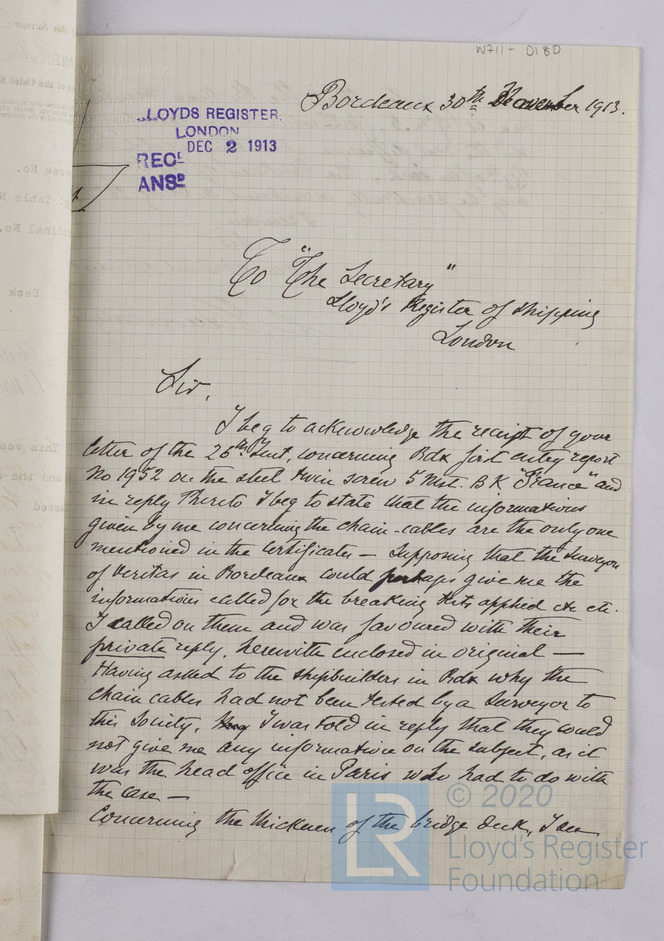 W711-0180
Bordeaux 30th November 1913.
LLOYDS REGISTER,
LONDON
DEC 2 1913
REC!
ANSD
To "The Secretary"
Lloyd's Register of Shipping
London
Sir,
I beg to acknowledge the receipt of your
letter of the 26th Inst, concerning Bdx first entry report
No 1952 on the steel twin screw 5 Mst. BK "France" and
in reply thereto I beg to state that the informations
given by me concerning the chain-cables are the only one
mentioned in the Certificates — Supposing that the Surveyor
of Veritas in Bordeaux could perhaps give me the
informations called for the breaking tests applied &c &c.
I called on them and was favoured with their
private reply, herewith enclosed in original —
Having asked to the shipbuilders in Bdx why the
chain cables had not been tested by a Surveyor to
this Society, I was told in reply that they could
not give me any information on the subject, as it
was the head office in Paris who had to do with
the case —
Concerning the thickness of the bridge deck, I
© 2020
LR
Lloyd's Register
Foundation